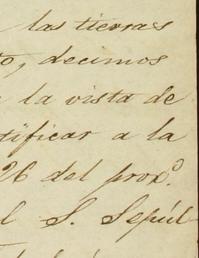 las tierras
to, decimos
la vista de
tificar a la
26 del prox.º
l S. Sepúl-